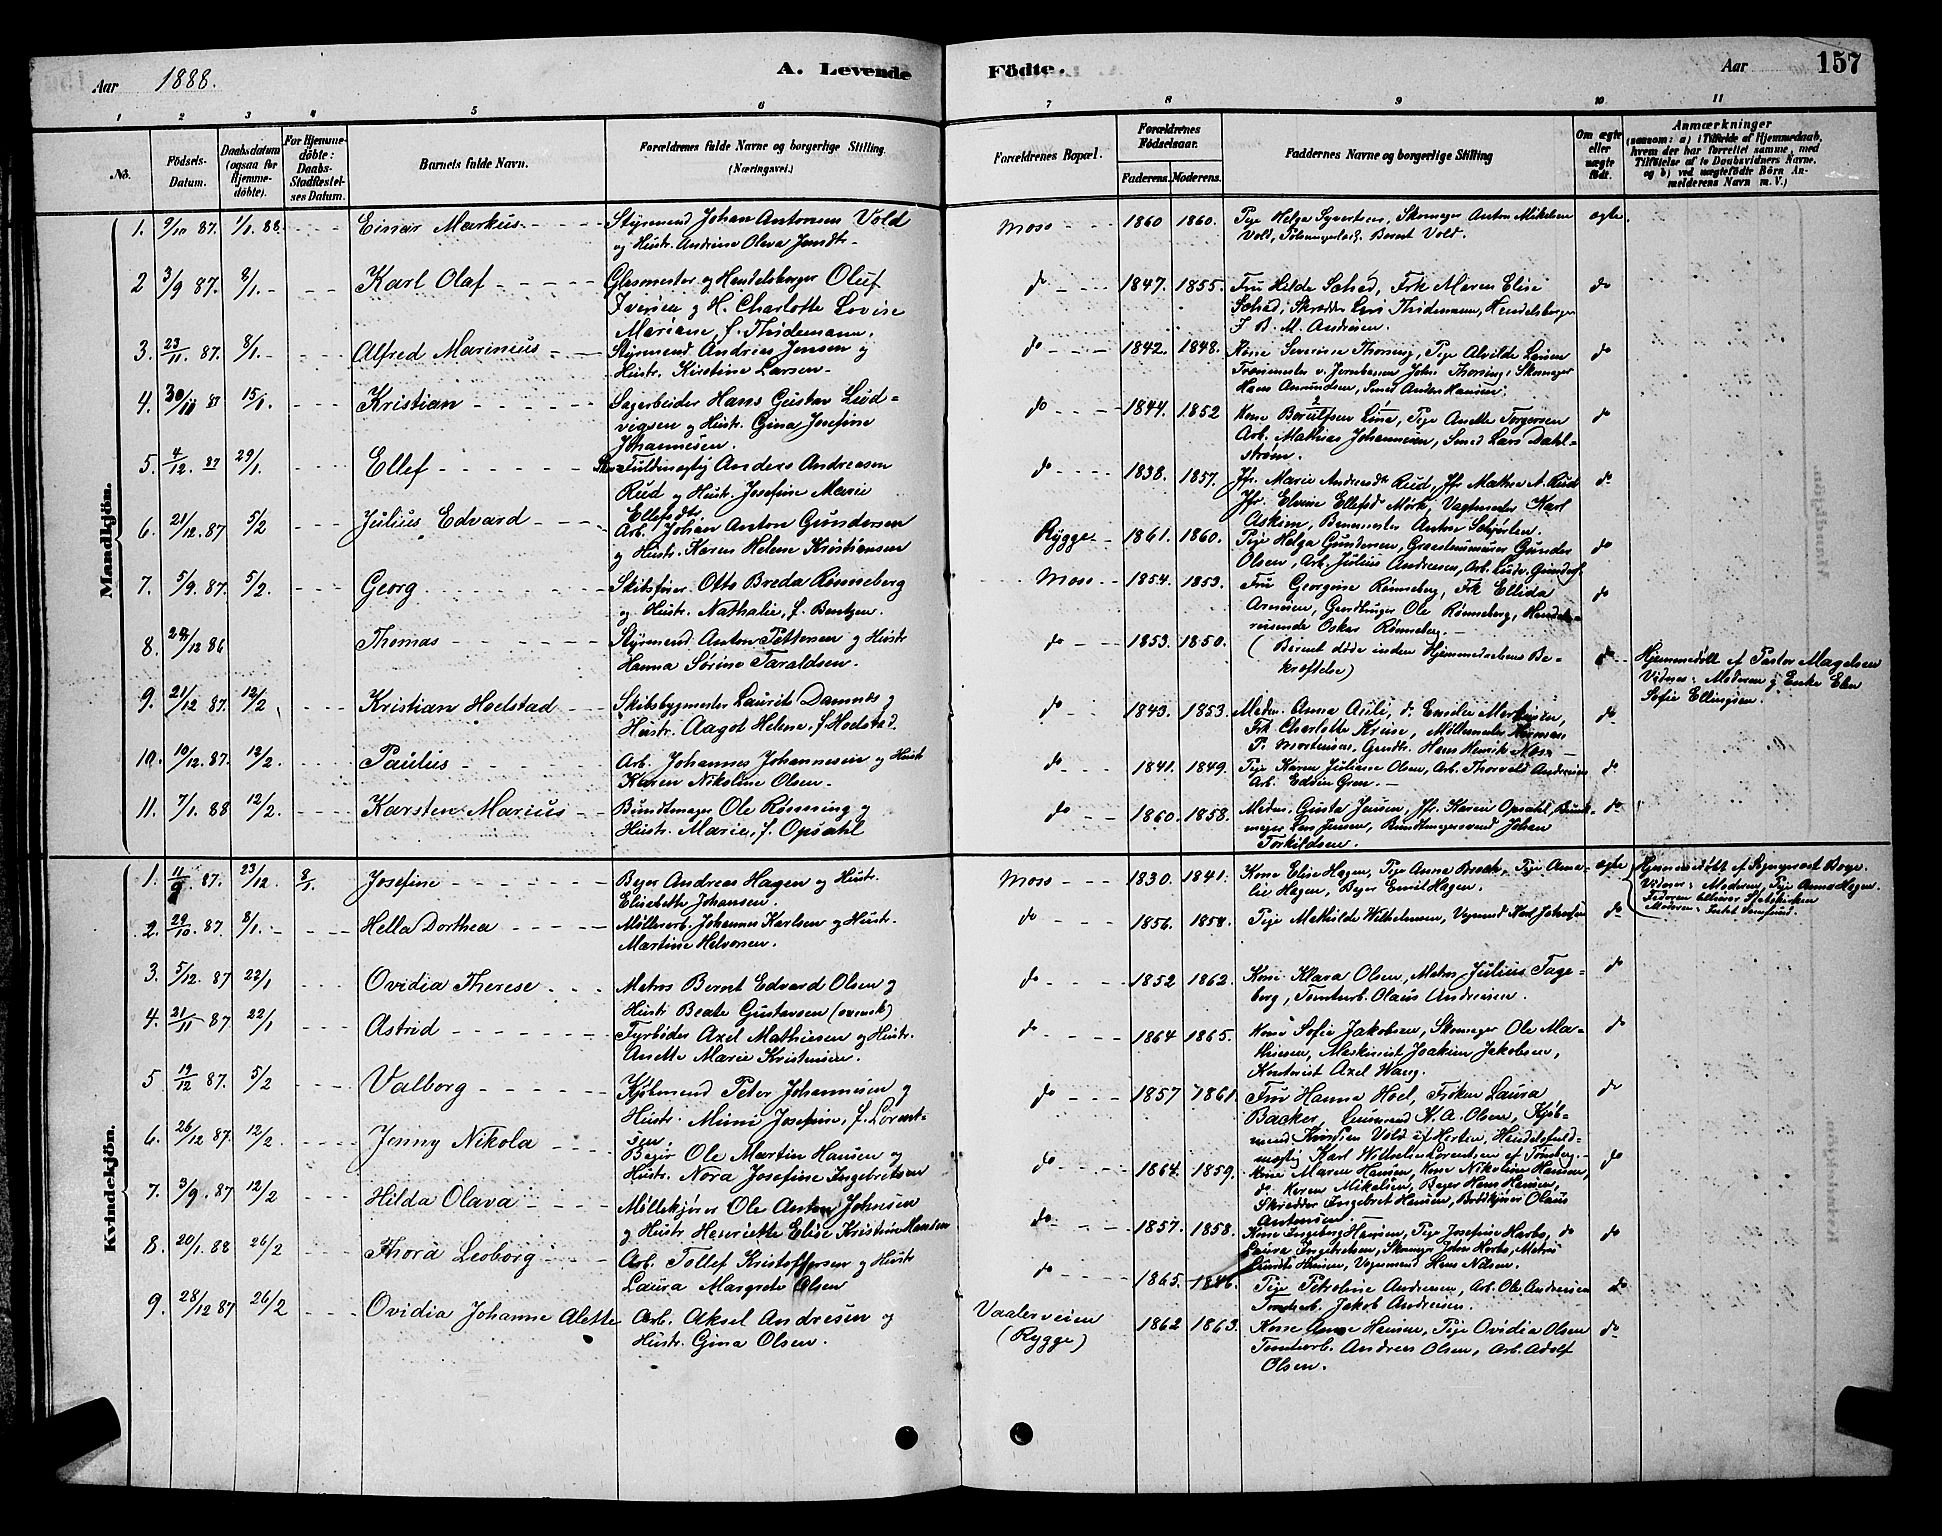 Aar 1888.
A. Levende Födte.
Aar 157
1 2 3 4 5 6 7 8 9 10 11
No.
Födsels-Datum.
Daabsdatum (ogsaa for Hjemme-döbte).
For Hjemme-döbte: Daabs-Stadfæstel-ses Datum.
Barnets fulde Navn.
Forældrenes fulde Navne og borgerlige Stilling. (Næringsvei.)
Forældrenes Bopæl.
Forældrenes Födselsaar.
Faderens. Moderens.
Faddernes Navne og borgerlige Stilling
Om ægte eller uægte födt.
Anmærkninger
(saasom: a) i Tilfælde af Hjemmedaab,
hvem der har forrettet samme, med
Tilföielse af to Daabsvidners Navne,
og b) ved uægtefödte Börn An-
melderens Navn m. V.)
Mandkjön.
1. 9/10 87. 1/1. 88. Einar Markus Styrmand Johan Antonsen Vold Moss 1860 1860. Pige Helga Syvertsen, Skomager Anton Mikelsen ægte.
og Hustr. Andrine Olava Vold, Bernt Vold.
2 3/9 87. 8/1. Karl Olaf Glasmester og Handelsborger Oluf do 1847. 1855. Fru Hilde Frk Maren Elise do
Iversen og H. Charlotte Lovise Skrædder Lars Thidemann, Handelsborger
Mariane, f. Thidemann. J. B. M. Andresen.
3. 23/11. 87. 8/1. Alfred Marinius Styrmand Andreas Jensen og do 1842. 1848. Kone Severine Thorsing, Pige Alvilde Larsen do
Hustr. Kirstine Larsen v. Jernbanen John Thorsing, Skomager
Hans Amundsen, Smed Anders Hansen.
4. 30/11 87 15/1. Kristian Sagarbeider Hans Gustav Lud- do 1844. 1852 Kone Lina, Pige Anette Torgersen do
vigsen og Hustr. Gina Josefine Arb. Mathias Johannesen, Smed Lars Dahl-
Johannesen. strøm.
5. 4/12. 87 29/1. Ellef Fuldmægtig Anders Andreasen do 1838. 1857. Jfr. Marie Rud, Jfr Mathea A. Rud do
Rud og Hustr. Josefine Marie Jfr. Elvine Mørk, Vagtmester Karl
Ellefsdtr. Askim, Anton
6. 21/12. 87 5/2 Julius Edvard Arb. Johan Anton Gundersen Rygge 1861. 1860. Pige Helga Gundersen, Gunder do
og Hustr. Karen Helene Kristiansen Olsen, Arb. Julius Andresen, Arb. Ludv.
7. 5/9. 87. 5/2. Georg Skibsfører Otto Breda Rønneberg Moss 1854. 1853. Fru Georgine Rønneberg, Frk Ellida do
og Hustr. Nathalie, f. Bentzen. Ole Rønneberg, Handels-
reisende Oskar Rønneberg.
8. /12 86 Thomas Styrmand Anton Pettersen og Hustr do 1853. 1850. (Barnet døde inden Hjemmedaabens Be- do Hjemmedöbt af Pastor Magelsen
Hanna Sørine Taraldsen. kræftelse) Vidner: Moderen og Enke Elen
Sofie Ellingsen.
9. 21/12 87. 12/2 Kristian Hoelstad Skibsbygmester Laurits Damnæs og do 1843. 1853. Madm. Anna Auli, d. Emilie Mortensen, do
Hustr. Aagot Helene, f. Frk Charlotte Møllemester Herman
P. Mortensen, Hans Henrik
10. 10/12. 87. 12/2. Paulus Arb. Johannes Johannesen og Hustr do 1841. 1849. Pige Karen Juliane Olsen, Arb. Thorvald Andresen do
Karen Nikoline Olsen. Arb. Edvin Gran.
11. 7/1. 88 12/2. Karsten Marius Bundtmager Ole Rønning og do 1860. 1858. Madm. Gusta Jensen, Jfr. Karen Opsahl, Bundt- do
Hustr. Marie, f. Opsahl mager Lars Jensen, Bundtmagersvend Johan
Torkildsen.
Kvindekjön.
1. 11/9. 87. 23/12. 8/1. Josefine Bager Andreas Hagen og Hustr. Moss 1830. 1841. Kone Elise Hagen, Pige Anna Pige Ama- ægte Hjemmedøbt af Borge.
Elisabeth Johansen. lie Hagen, Bager Emil Hagen. Vidner: Moderen, Pige Anna Hagen.
Faderen tilhører Statskirken
Moderen: Intet Samfund.
2. 29/10. 87. 8/1. Hella Dorthea Møllerarb. Johannes Karlsen og Hustr. do 1856. 1854. Pige Mathilde Wilhelmsen, Vognmand Karl do
Martine Halvorsen.
3. 5/12. 87 22/1 Ovidia Therese Matros Bernt Edvard Olsen og do 1852 1862. Kone Klara Olsen, Matros Julius Tage- do
Hustr Beate Gustavsen (svensk) berg, Tomtearb. Olaus Andresen.
4. 21/11 87 22/1 Astrid Fyrbøder Axel Mathiesen og Hustr. do 1864 1865. Kone Sofie Jakobsen, Skomager Ole Ma- do
Anette Marie Kristensen. thiesen, Maskinist Joakim Jakobsen,
Kontorist Axel Wang.
5 19/12 87. 5/2 Valborg Kjøbmand Peter Johannesen og do 1857 1861. Fru Hanna Hoel, Frøken Laura do
Hustr. Mimi Josefine, f. Lorent- Backer, K. A. Olsen, Kjøb-
sen. mand Karsten Vold af Horten, Handelsfuld-
mægtig Karl Wilhelm Lorentsen af Tønsberg.
6. 26/12 87. 12/2. Jenny Nikola Bager Ole Martin Hansen og do 1864. 1859. Kone Maren Hansen, Kone Nikoline Hansen, do
Hustr. Nora Josefine Ingebretsen do Karen Mikalsen, Bager Hans Hansen,
Skrædder Ingebret Hansen, Brødkjører Olaus
Antonsen.
7. 3/9. 87 12/2 Hilda Olava Møllekjører Ole Anton Johnsen do 1857. 1858. Kone Ingeborg Hansen, Pige Josefine Harbo, do do
og Hustr Henriette Elise Kristine Hansen Laura Ingebretsen, Skomager John Harbo, Matros
Laurits Hansen, Vognmand Hans Nilsen.
8. 20/1. 88 26/2 Thora Leoborg Arb. Tollef Kristoffersen og Hustr do 1865. 1846. Pige Petroline Andresen, Arb. Ole Andresen do
Laura Margrete Olsen Tomtearb. Jakob Andresen.
9. 28/12 87 26/2 Ovidia Johanne Alette Arb. Aksel Andresen og Vaalerveien 1862 1863. Kone Anne Hansen, Pige Ovidia Olsen do
Hustr. Gina Olsen. (Rygge) Tomtearb. Andreas Olsen, Arb. Adolf
Olsen.